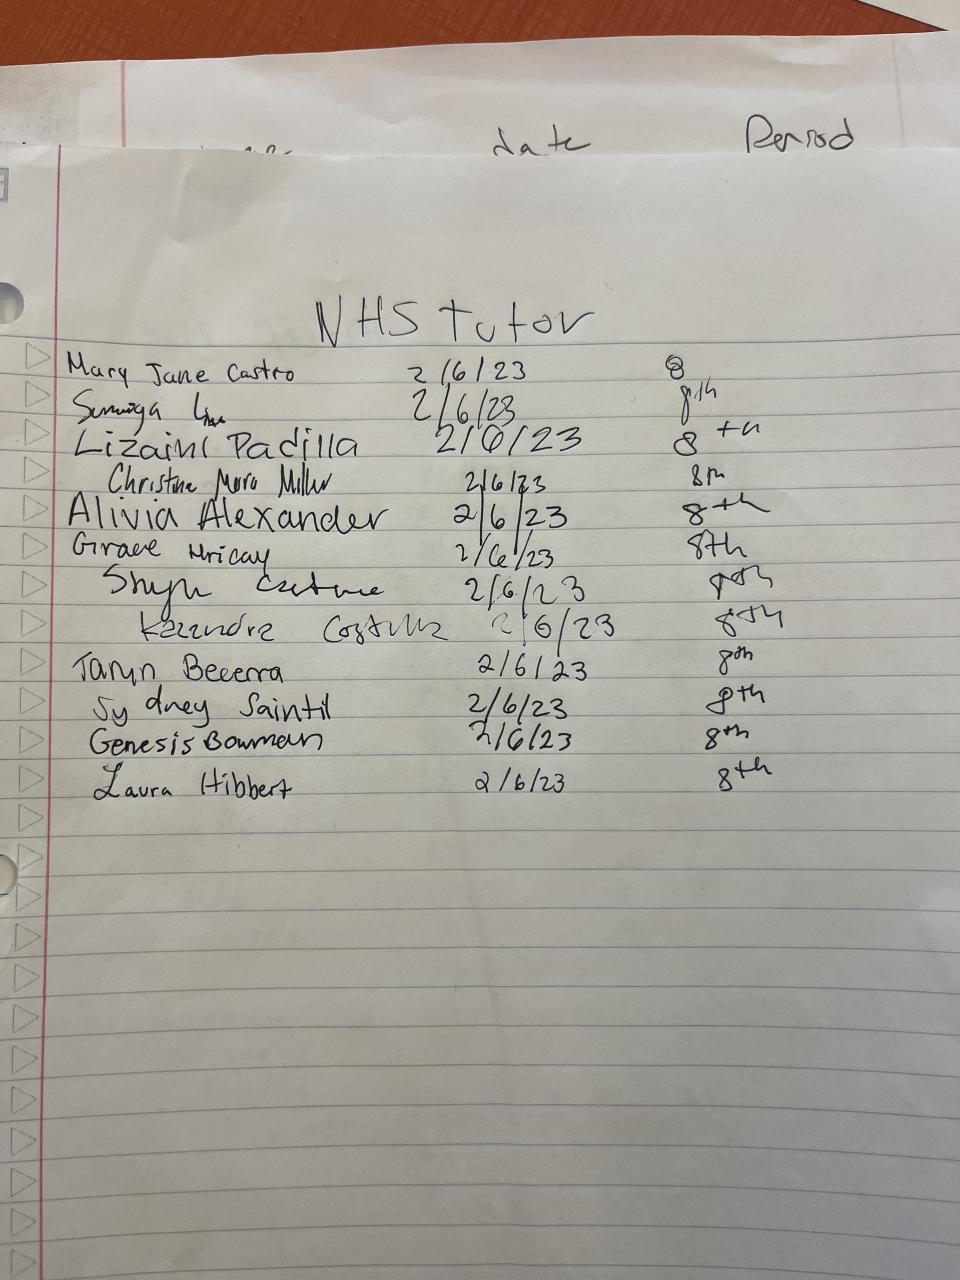 date Period
NHS Tutor
Mary Jane Castro 2/6/23 8
2/6/23 8th
Padilla 2/6/23 8th
Christine Mora Miller 2/6/23 8th
Alivia Alexander 2/6/23 8th
Grace 2/6/23 8th
2/6/23 8th
2/6/23 8th
Taryn Becerra 2/6/23 8th
Sydney Saintil 2/6/23 8th
Genesis Bowman 2/6/23 8th
Laura Hibbert 2/6/23 8th